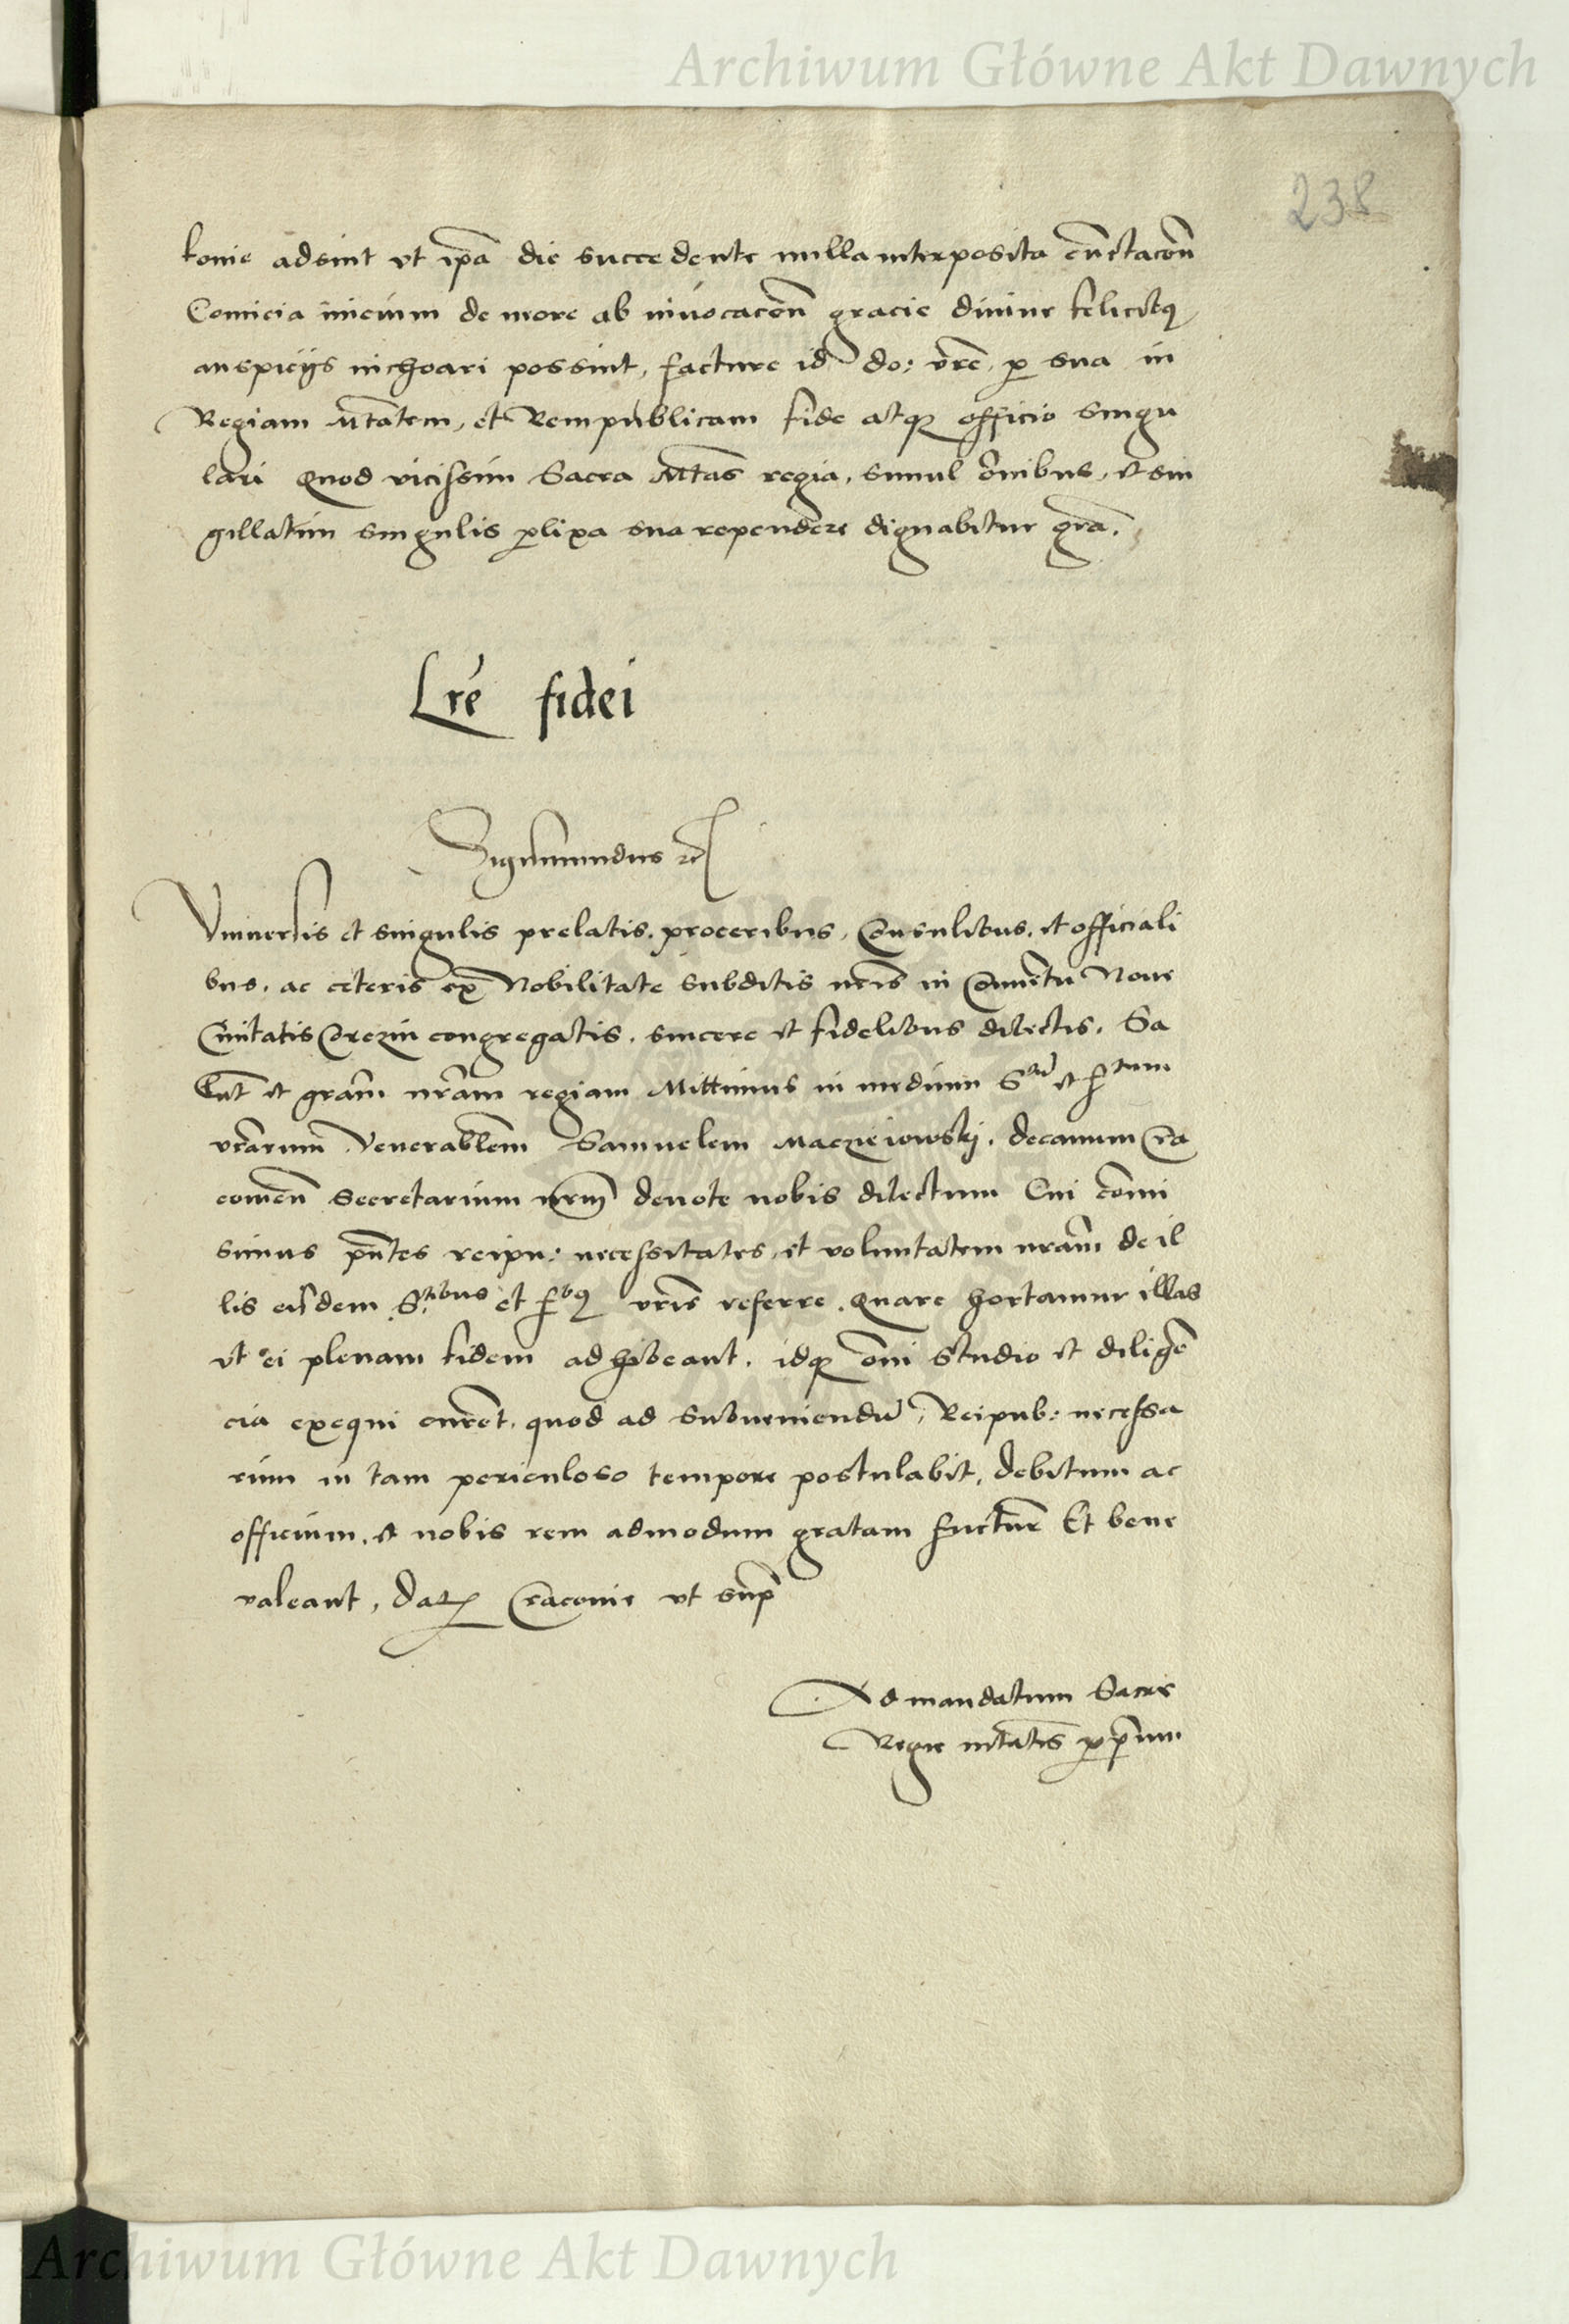 Archiwum Główne Akt Dawnych
238
konie adsint vt ip̃a die succedente nulla interposita cũctacõn
Comicia inicium de more ab inuocacõn gracie diuine felicibq
auspicijs inchoari possint, facture id do: vrẽ, p sua in
Regiam Mtãtem, et Rempublicam fide atq officio singu
lari Quod vicissim Sacra Mtãs regia, simul õnibus, et sin
gillatim singulis plixa sua rependere dignabitur grã.
Lrẽ fidei
Sigismundus rc
Vniuersis et singulis prelatis, proceribus, Consulibus, et officiali
bus, ac ceteris ex Nobilitate subditis nrĩs in Conuẽtu Noue
Ciuitatis Corczin congregatis, sincere et fidelibus dilectis, Sa
lut̃ et grãm nrãm regiam Mittimus in medium S et f tum
vrãrum Venerablem Samuelem Maczieiowskj, decanum Cra
comeñ Secretarium nrm̃ deuote nobis dilectum Cui cõmi
simus pñtes reipu: necessitates, et voluntatem nrãm de il
lis eisdem S.tibus et f bq vrĩs referre. Quare hortamur illas
vt ei plenam fidem adhibeant, idq õni studio et diligẽ
cia exequi curẽt, quod ad subueniendũ, Reipub: necessa
rium in tam periculoso tempore postulabit, debitum ac
officium, et nobis rem admodum gratam facturẽ Et bene
valeant, Dat Cracouie vt sup̃
Ad mandatum Sacre
Regie mtãtis p p̃rium
Archiwum Główne Akt Dawnych